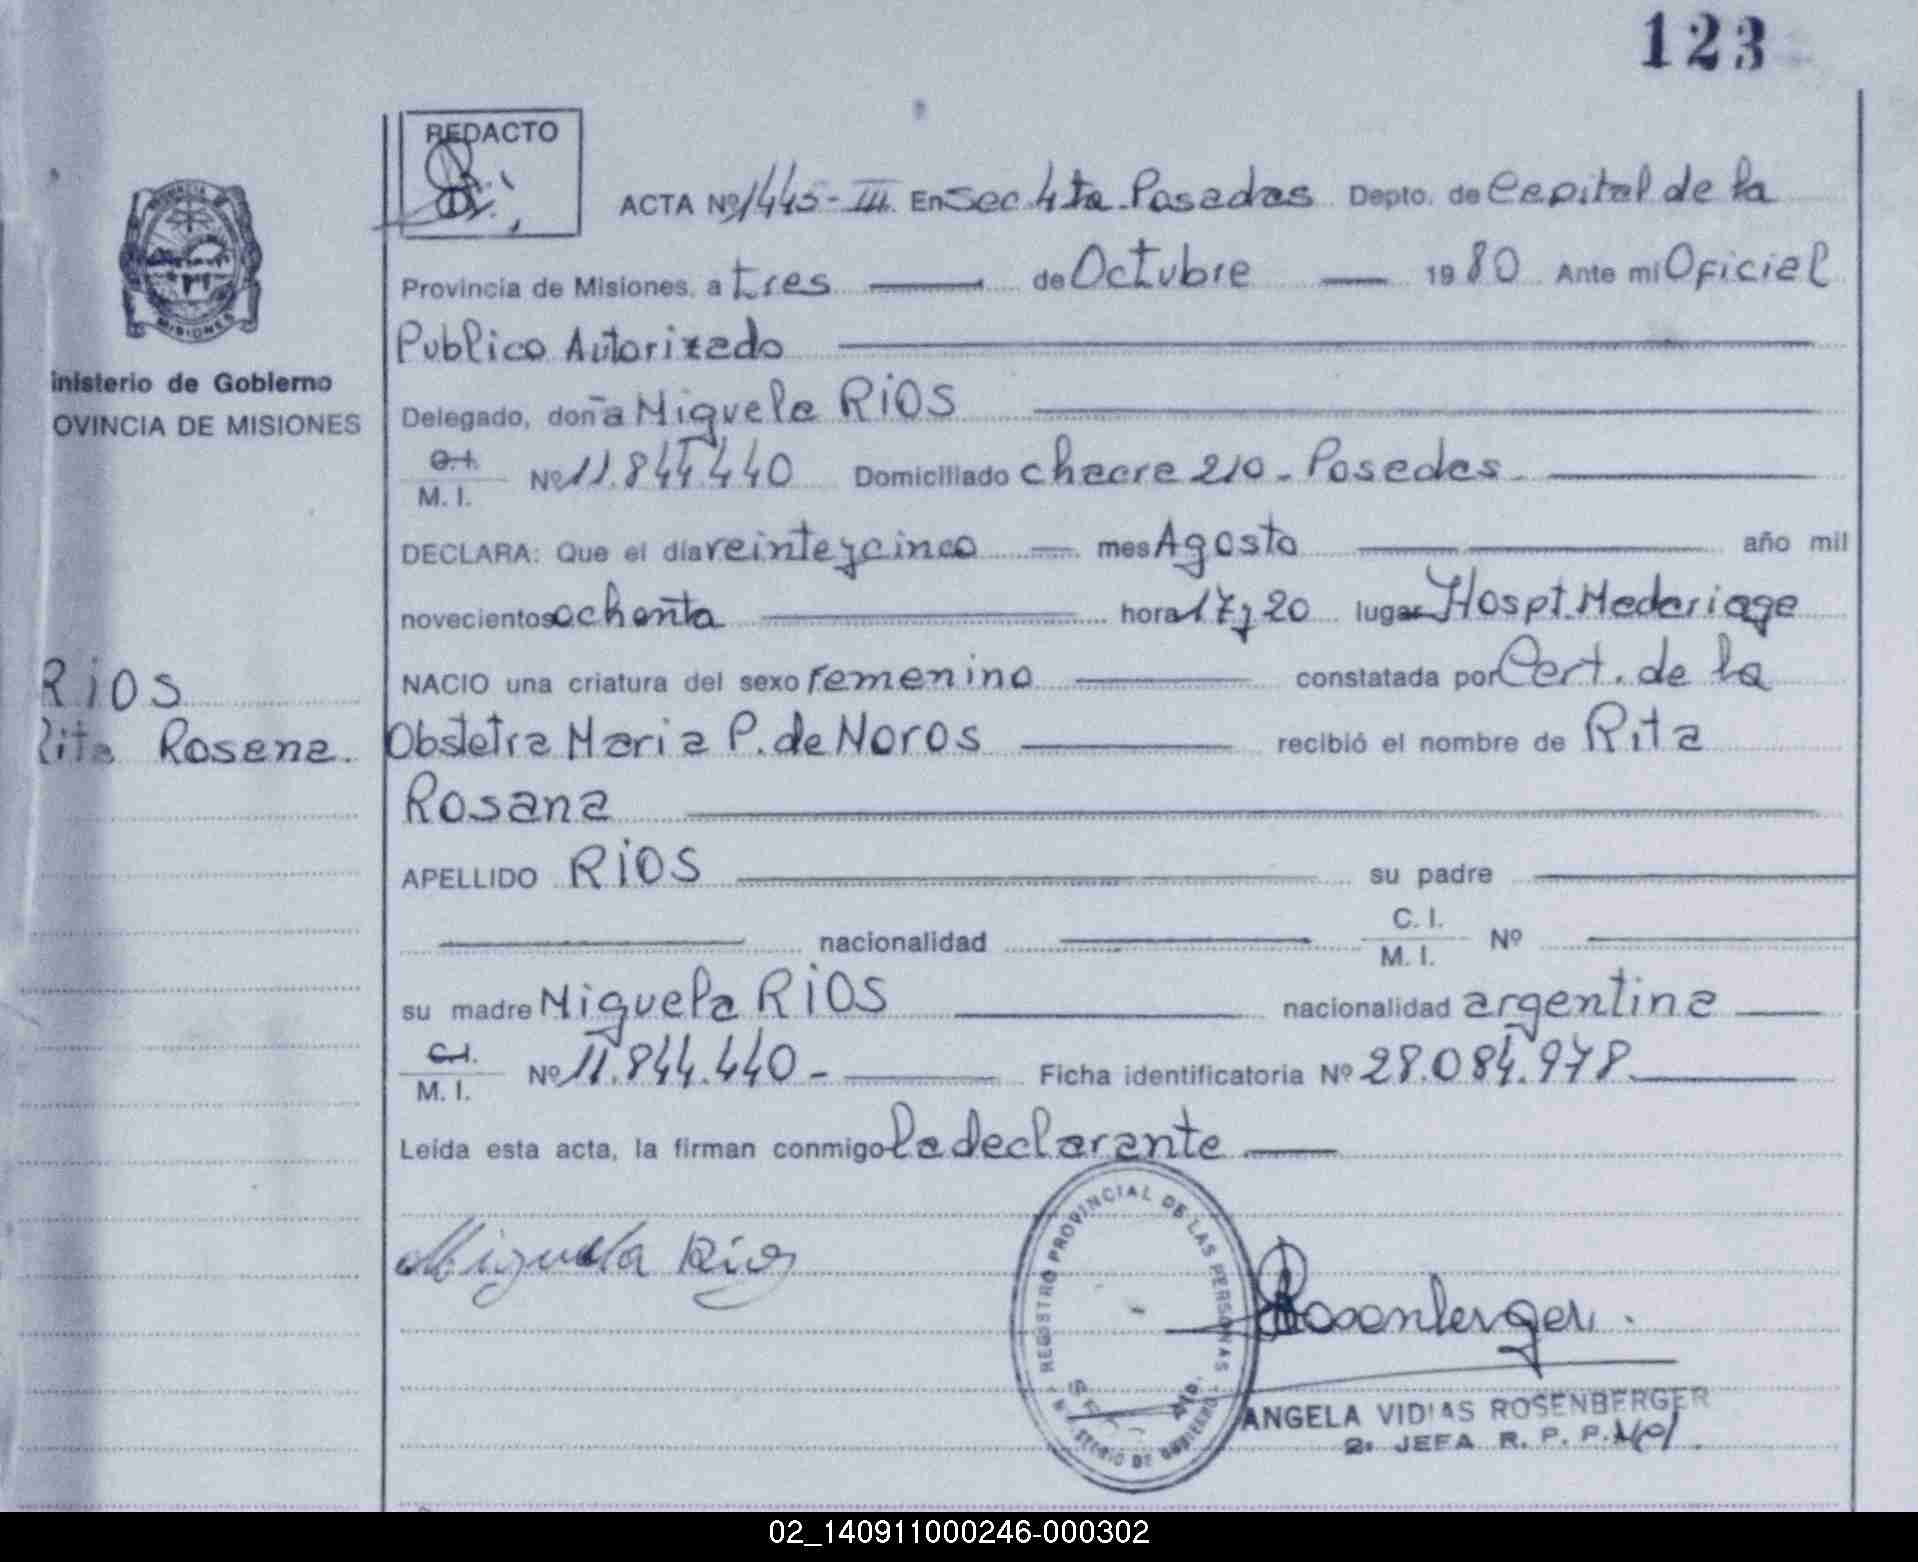 123
REDACTO
ACTA Nº 1445-III En Sec 4ta Posadas Depto. de Capital de la
Provincia de Misiones, a tres de Octubre 1980 Ante mi Oficial
Publico Autorizado
Delegado, doña Miguela RIOS
C.I. M. I. Nº 11.844.440 Domiciliado chacra 210 - Posadas
DECLARA: Que el día veinte y cinco mes Agosto año mil
novecientos ochenta hora 17 y 20 lugar Hospt. Madariaga
NACIO una criatura del sexo femenino constatada por Cert. de la
Obstetra Maria P. de Noros recibió el nombre de Rita
Rosana
APELLIDO RIOS su padre
nacionalidad C. I. M. I. Nº
su madre Miguela RIOS nacionalidad argentina
C.I. M. I. Nº 11.844.440 - Ficha identificatoria Nº 28.084.978
Leída esta acta, la firman conmigo la declarante
Miguela Rios
Rosenberger
ANGELA VIDIAS ROSENBERGER
2ª JEFA R. P. P.
REGISTRO PROVINCIAL DE LAS PERSONAS
PROVINCIA
MISIONES
inisterio de Gobierno
OVINCIA DE MISIONES
RIOS
Rita Rosana.
02_140911000246-000302